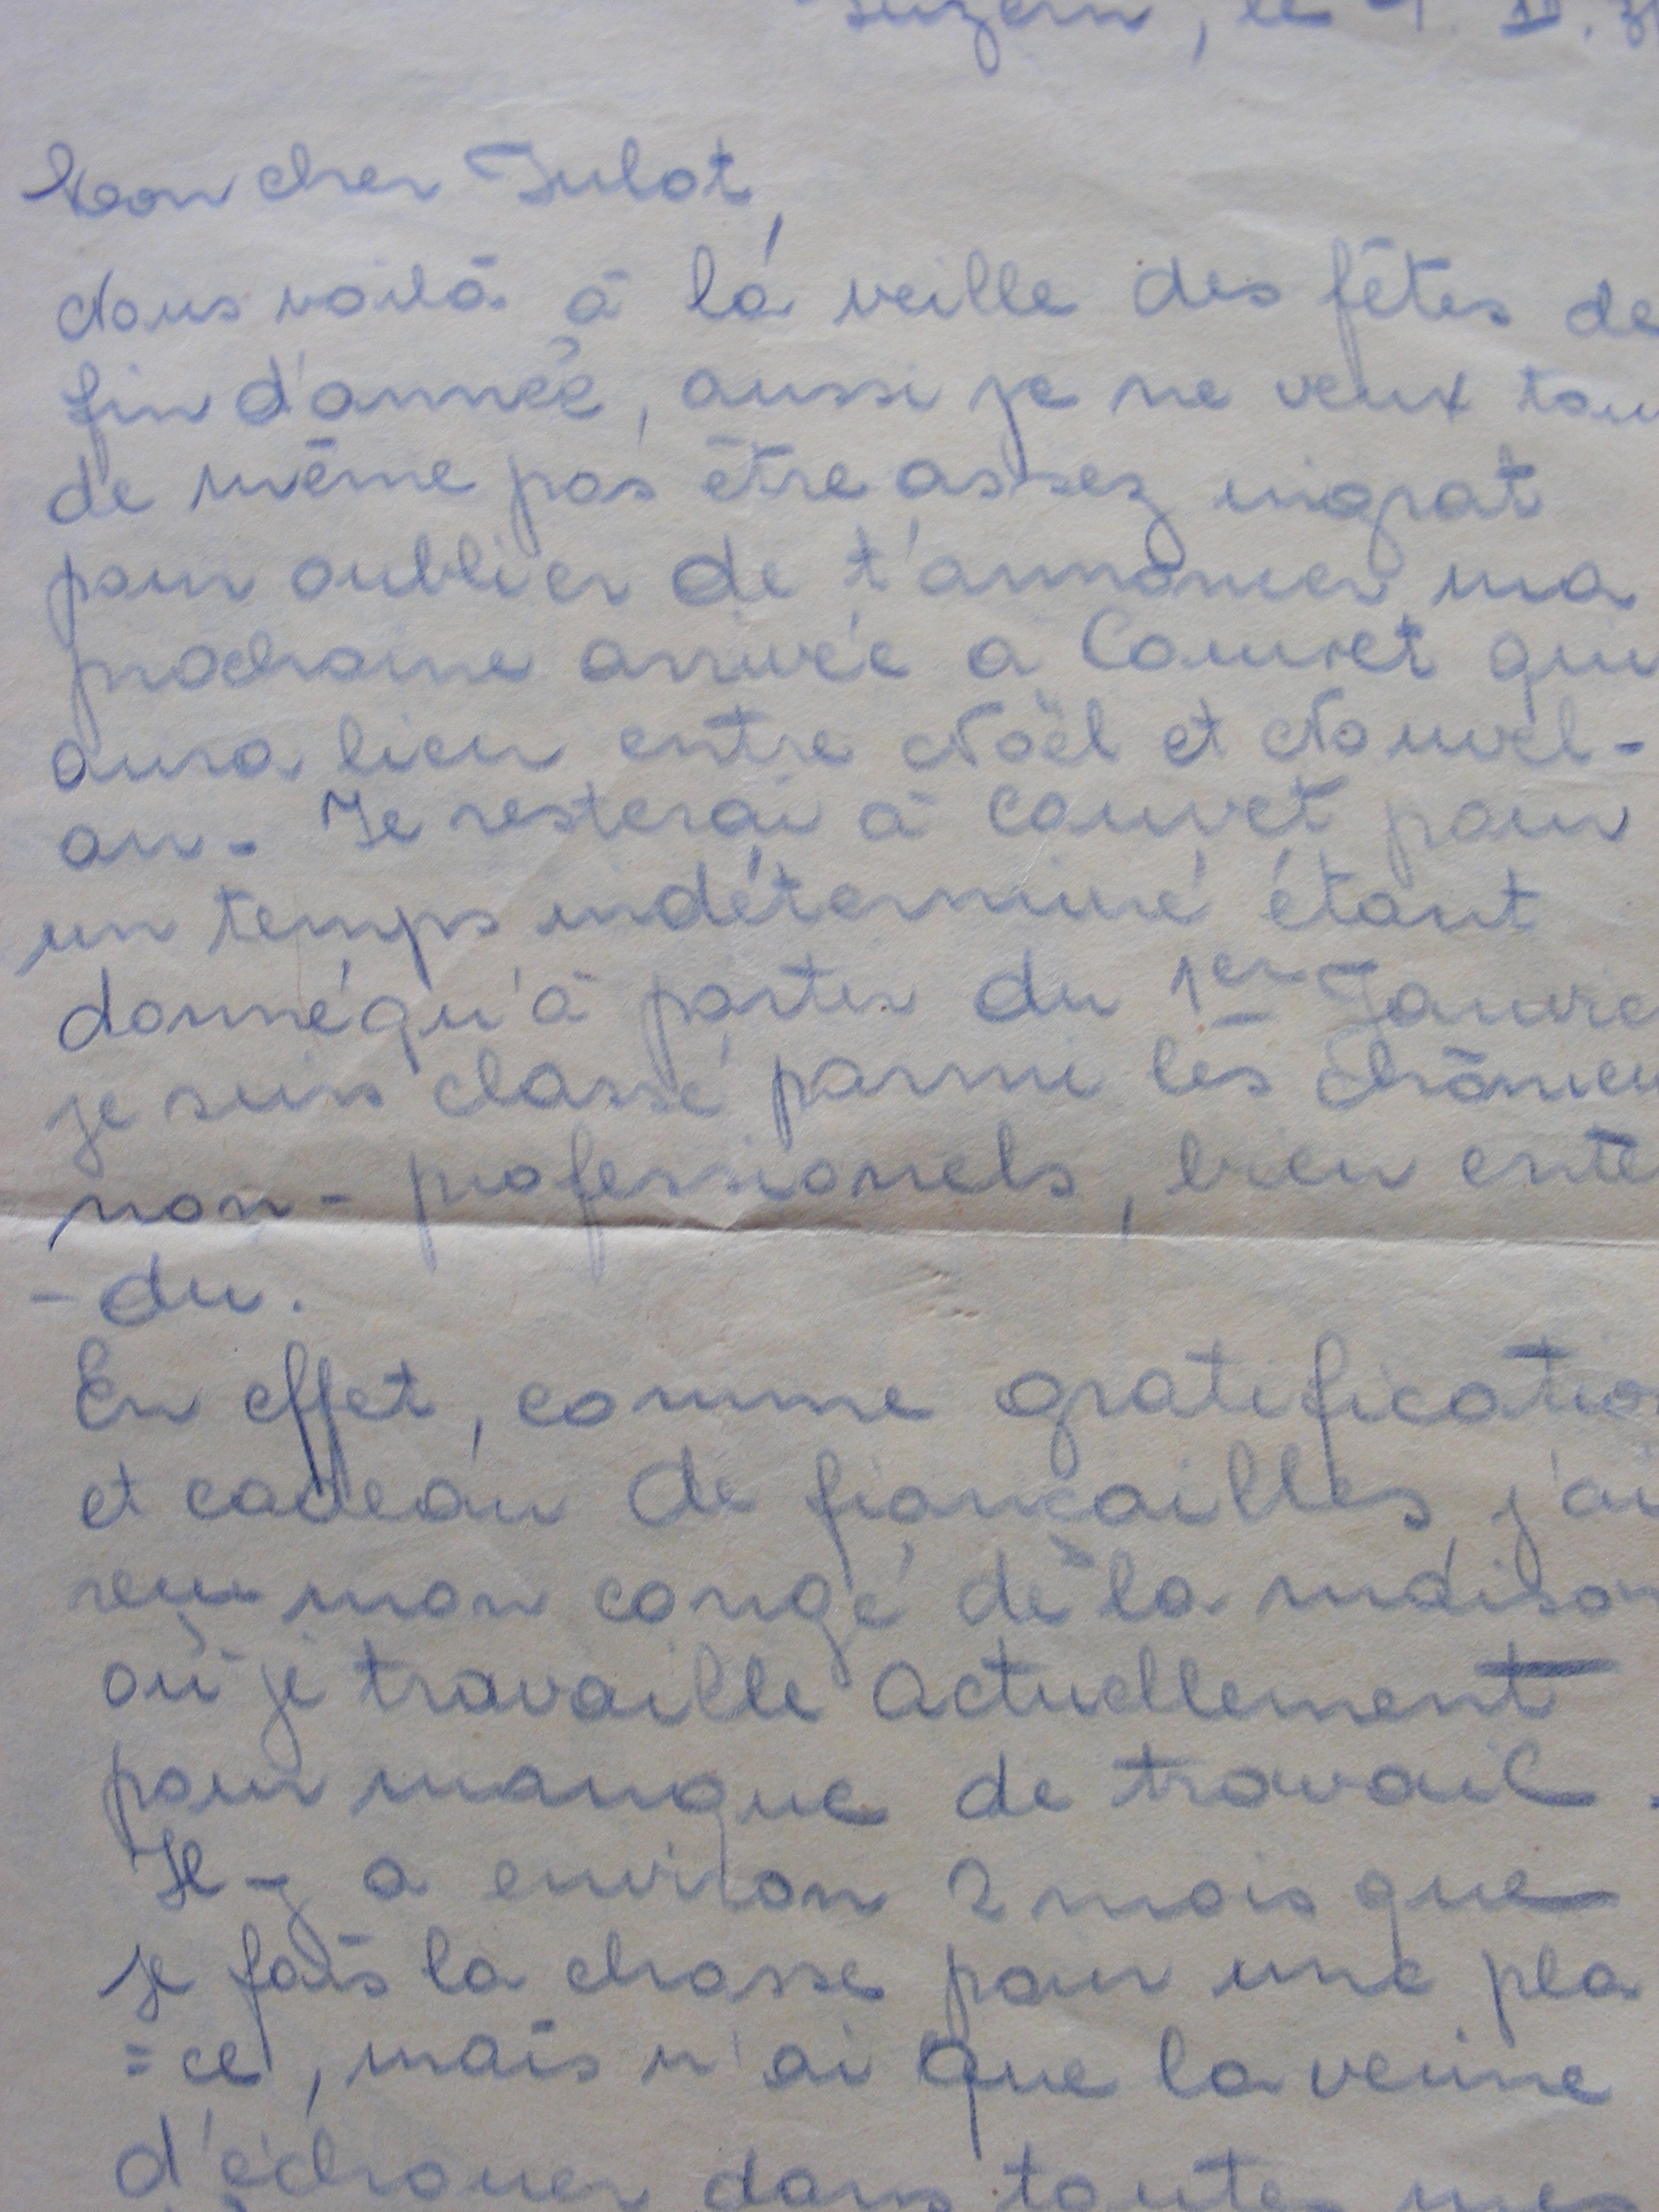 Luzern, le
Mon cher Julot,
Nous voilà à la veille des fêtes de
fin d'année, aussi je ne veux tou
de même pas être assez ingrat
pour oublier de t'annoncer ma
prochaine arrivée a Couvet qui
aura lieu entre Noël et Nouvel-
an. Je resterai à Couvet pour
un temps indéterminé étant
donné qu'à partir du 1er Janvie
je suis classé parmi les chômeu
non-professionels, bien enten
-du.
En effet, comme gratificatio
et cadeau de fiançailles, j'ai
reçu mon congé de la maison
où je travaille actuellement
pour manque de travail.
Il-y a environ 2 mois que
je fais la chasse pour une pla
=ce, mais n'ai que la veine
d'échouer dans toutes mes